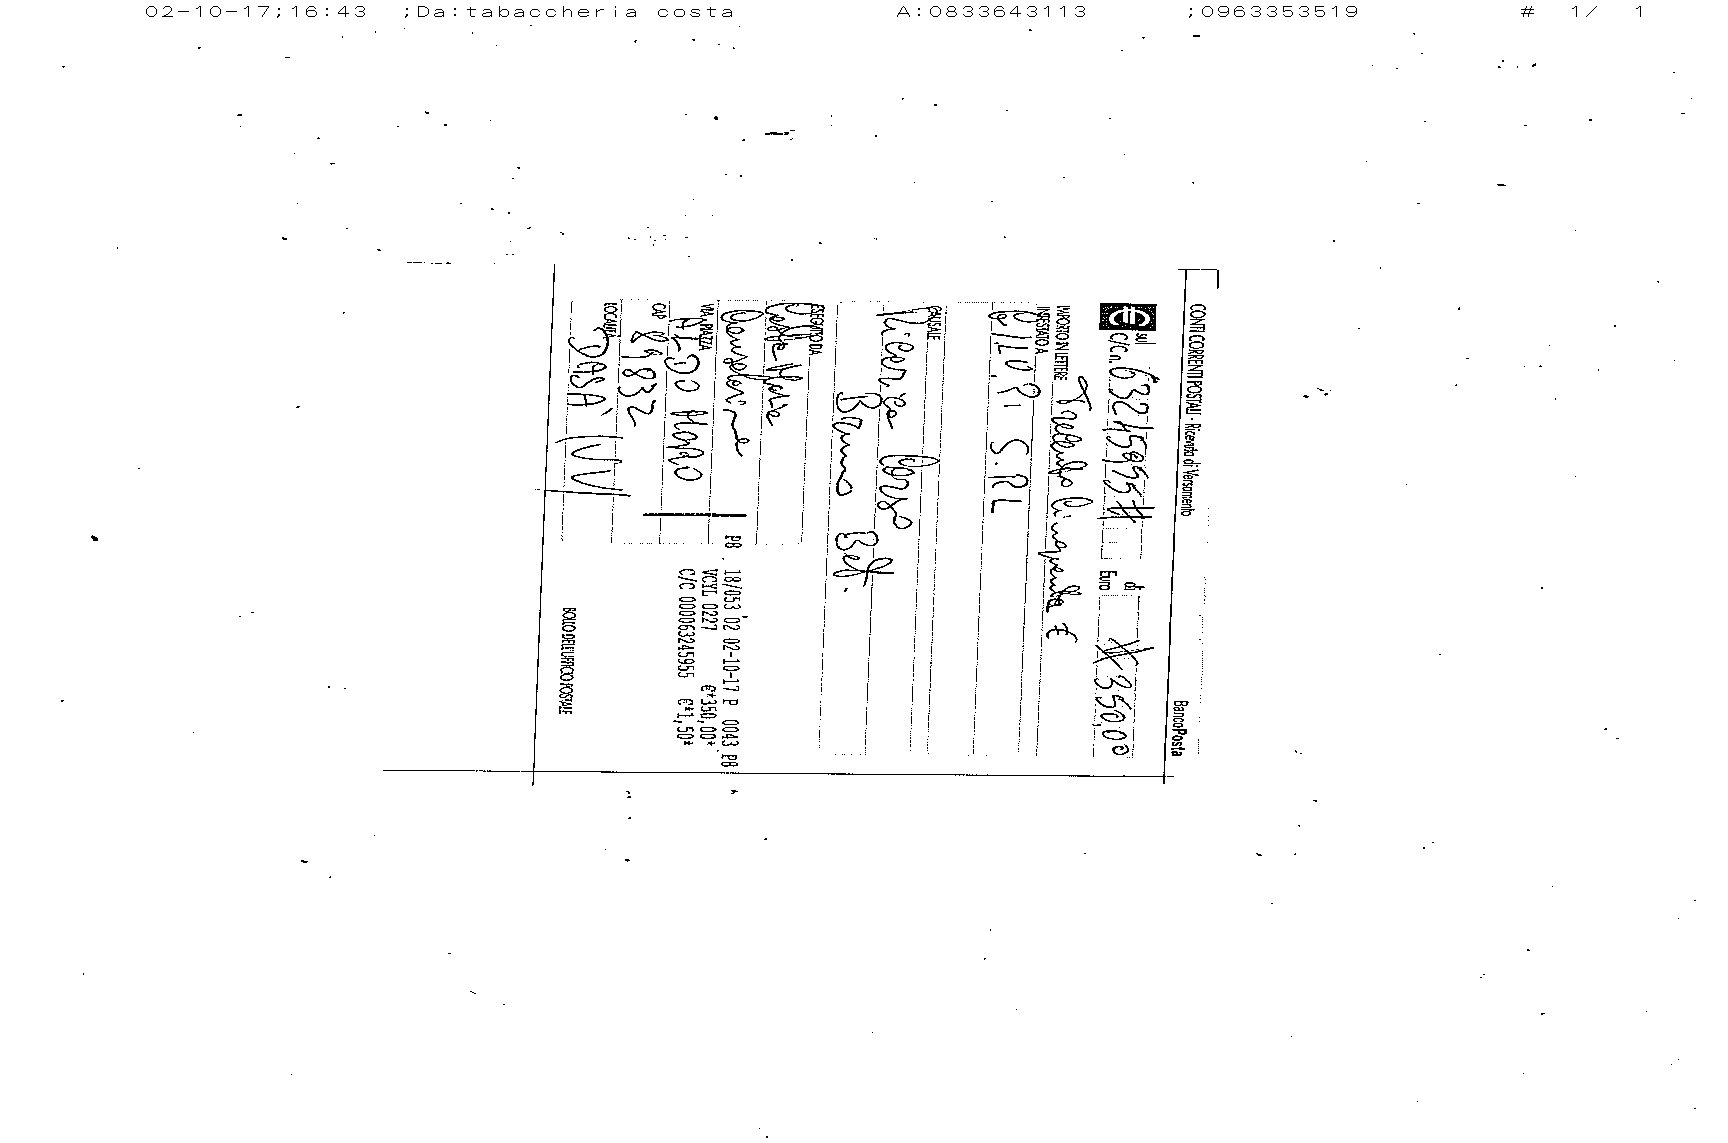 02-10-17;16:43 ;Da:tabaccheria costa A:0833643113 ;0963353519 # 1/ 1
CONTI CORRENTI POSTALI - Ricevuta di Versamento BancoPosta
sul C/C n. 63245955# di Euro #350,00
IMPORTO IN LETTERE Trecento Cinquanta €
INTESTATO A
S.RL
CAUSALE
Ricarica Corso
Bet.
ESEGUITO DA
Costa Maria
VIA, PIAZZA
ALDO MORO
CAP
89832
LOCALITÀ
DASÀ (VV)
PB 18/053 02 02-10-17 P 0043 PB
VCYL 0227 €*350,00*
C/C 000063245955 €*1,50*
BOLLO DELL'UFFICIO POSTALE